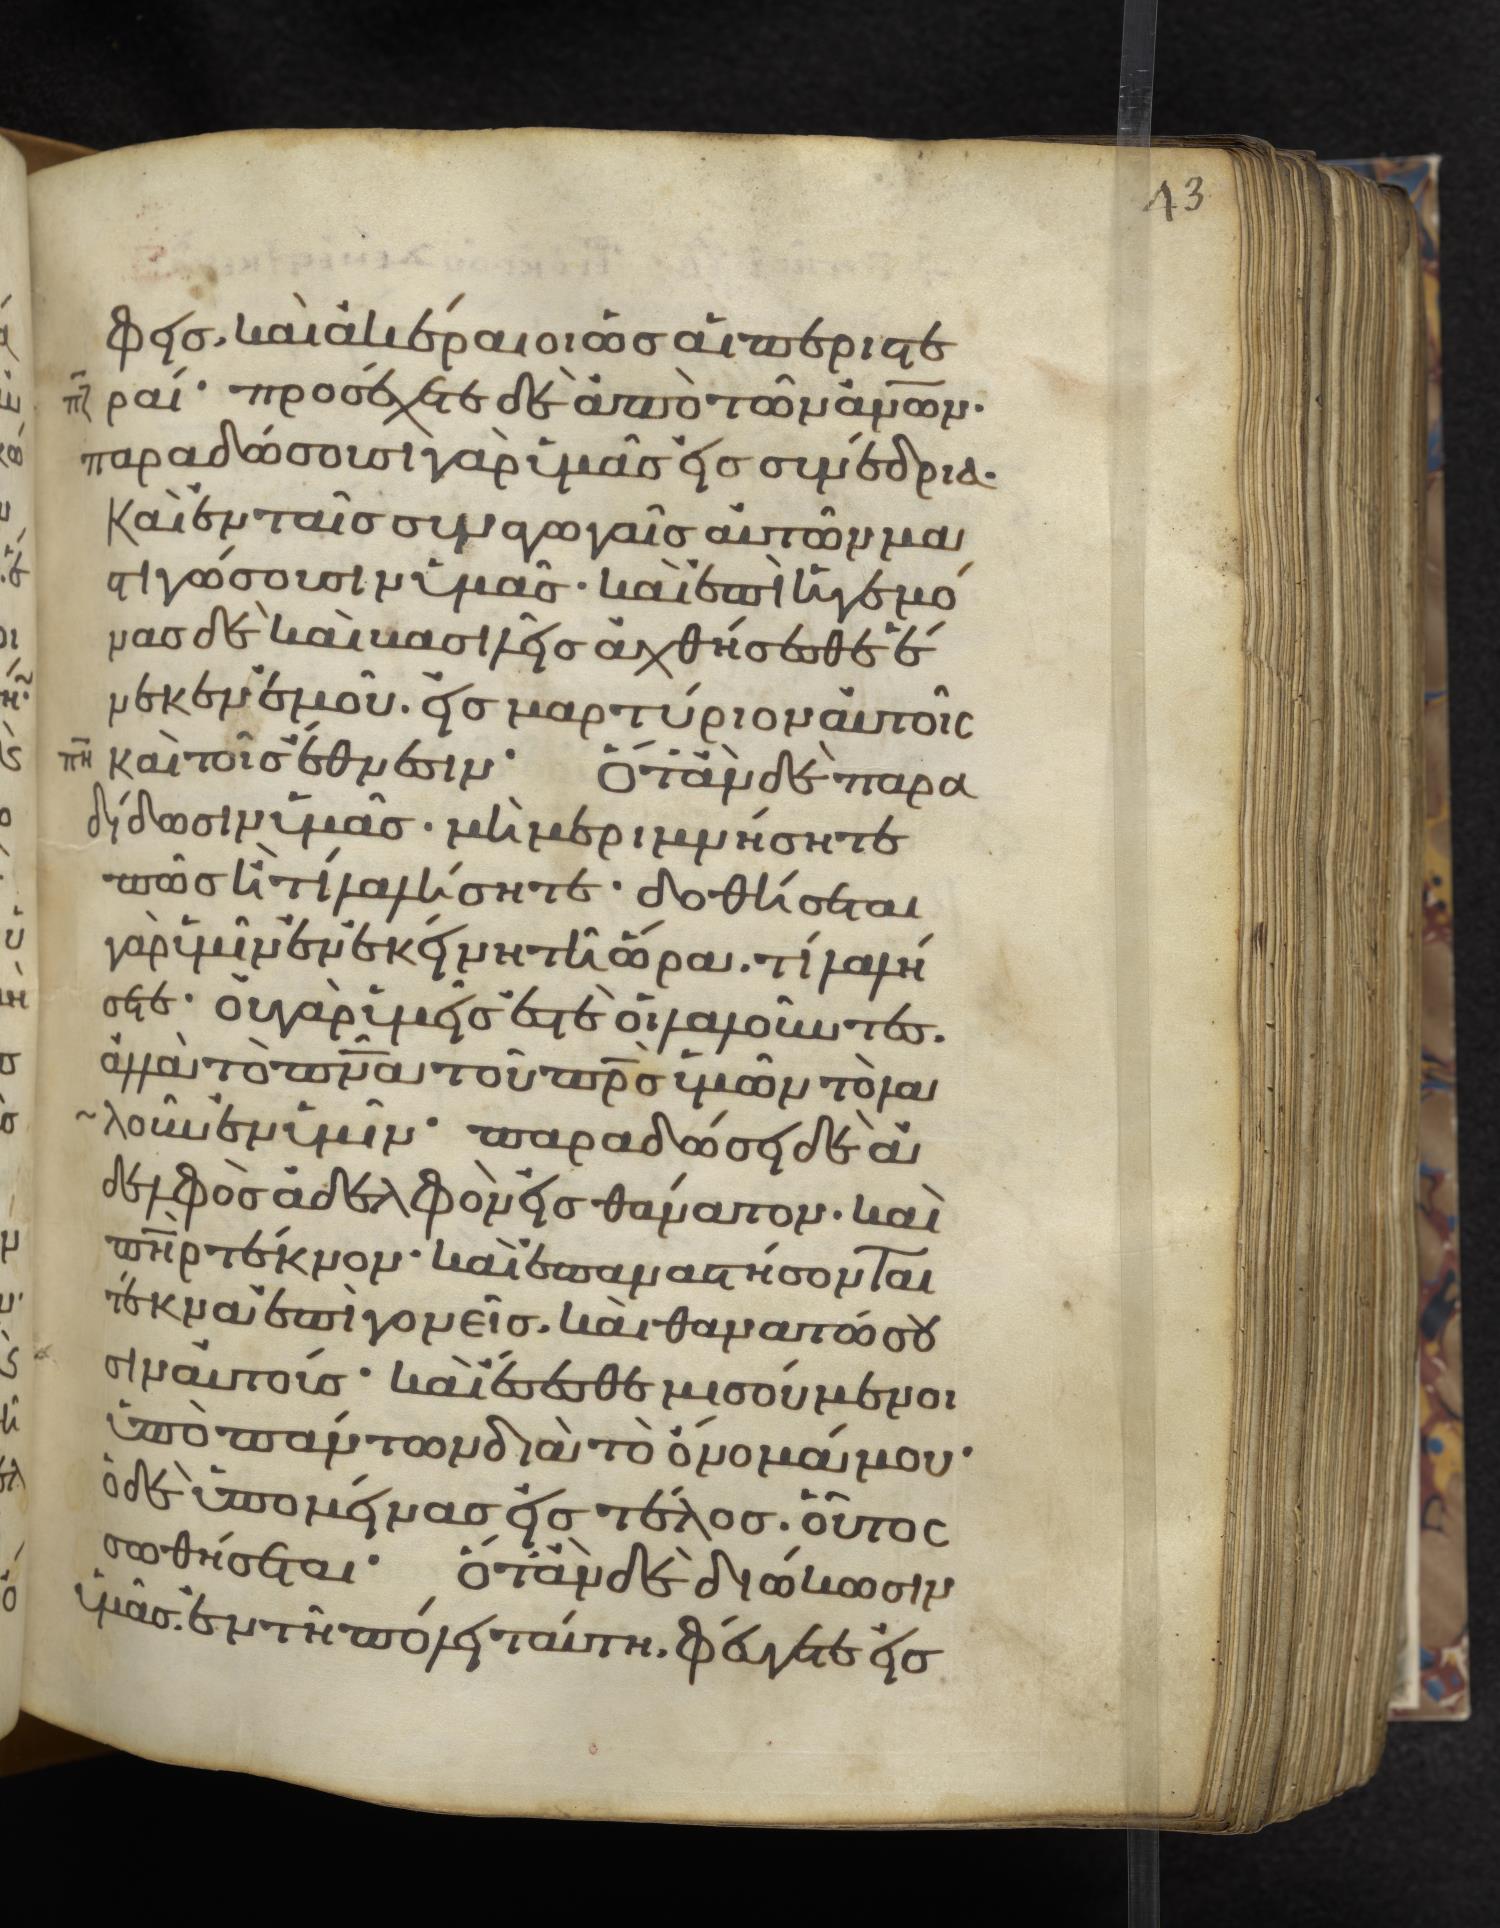 43
φεις. καὶ ἀκέραιοι ὡς αἱ περιστε
πζ ραί· προσέχετε δὲ ἀπὸ τῶν ἀν̅ων·
παραδώσουσι γὰρ ὑμᾶς εἰς συνέδρια·
Καὶ ἐν ταῖς συναγωγαῖς αὐτῶν μα
στιγώσουσιν ὑμᾶς· καὶ ἐπὶ ἡγεμό
νας δὲ καὶ βασιλεῖς ἀχθήσεσθε ἕ
νεκεν ἐμοῦ. εἰς μαρτύριον αὐτοῖς
πη καὶ τοῖς ἔθνεσιν· Ὅταν δὲ παρα
δίδωσιν ὑμᾶς· μὴ μεριμνήσητε
πῶς ἢ τί λαλήσητε· δοθήσεται
γὰρ ὑμῖν ἐν ἐκείνη τῆ ὥρα. τί λαλή
σετε· οὐ γὰρ ὑμεῖς ἐστὲ οἱ λαλοῦντες.
ἀλλὰ τὸ πν̅α τοῦ πρ̅ς ὑμῶν τὸ λα
λοῦν ἐν ὑμῖν· παραδώσει δὲ ἀ
δελφὸς ἀδελφὸν εἰς θάνατον· καὶ
πη̅ρ τέκνον· καὶ ἐπαναστήσονται
τέκνα ἐπὶ γονεῖς. καὶ θανατώσου
σιν αὐτούς· καὶ ἔσεσθε μισούμενοι
ὑπὸ πάντων διὰ τὸ ὄνομά μου·
ὁ δὲ ὑπομείνας εἰς τέλος. οὗτος
σωθήσεται· Ὅταν δὲ διώκωσιν
ὑμᾶς. ἐν τῆ πόλει ταύτη. φεύγετε εἰς